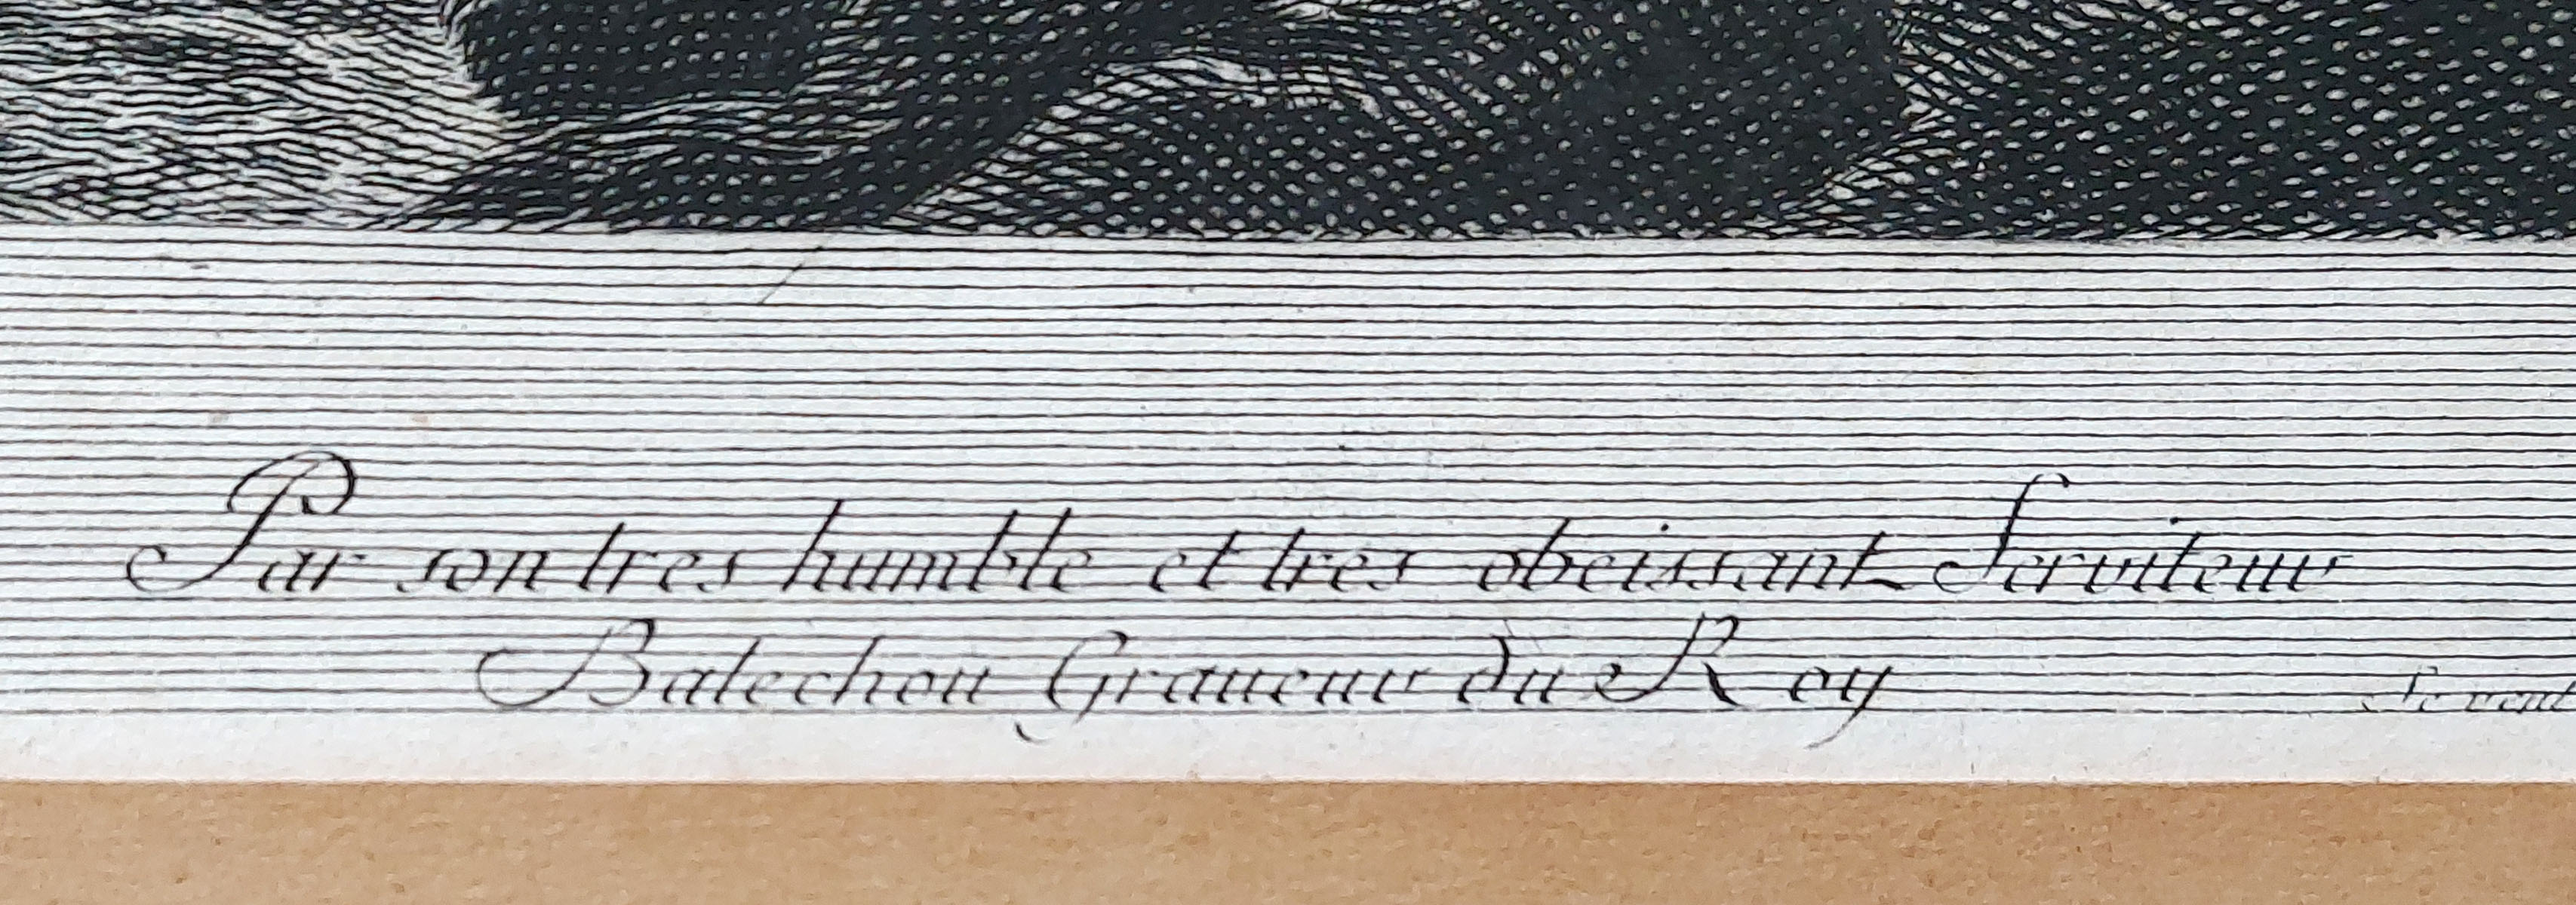 Par son tres humble et tres obeissant Serviteur
Balechou Graueur du Roy
Se vend